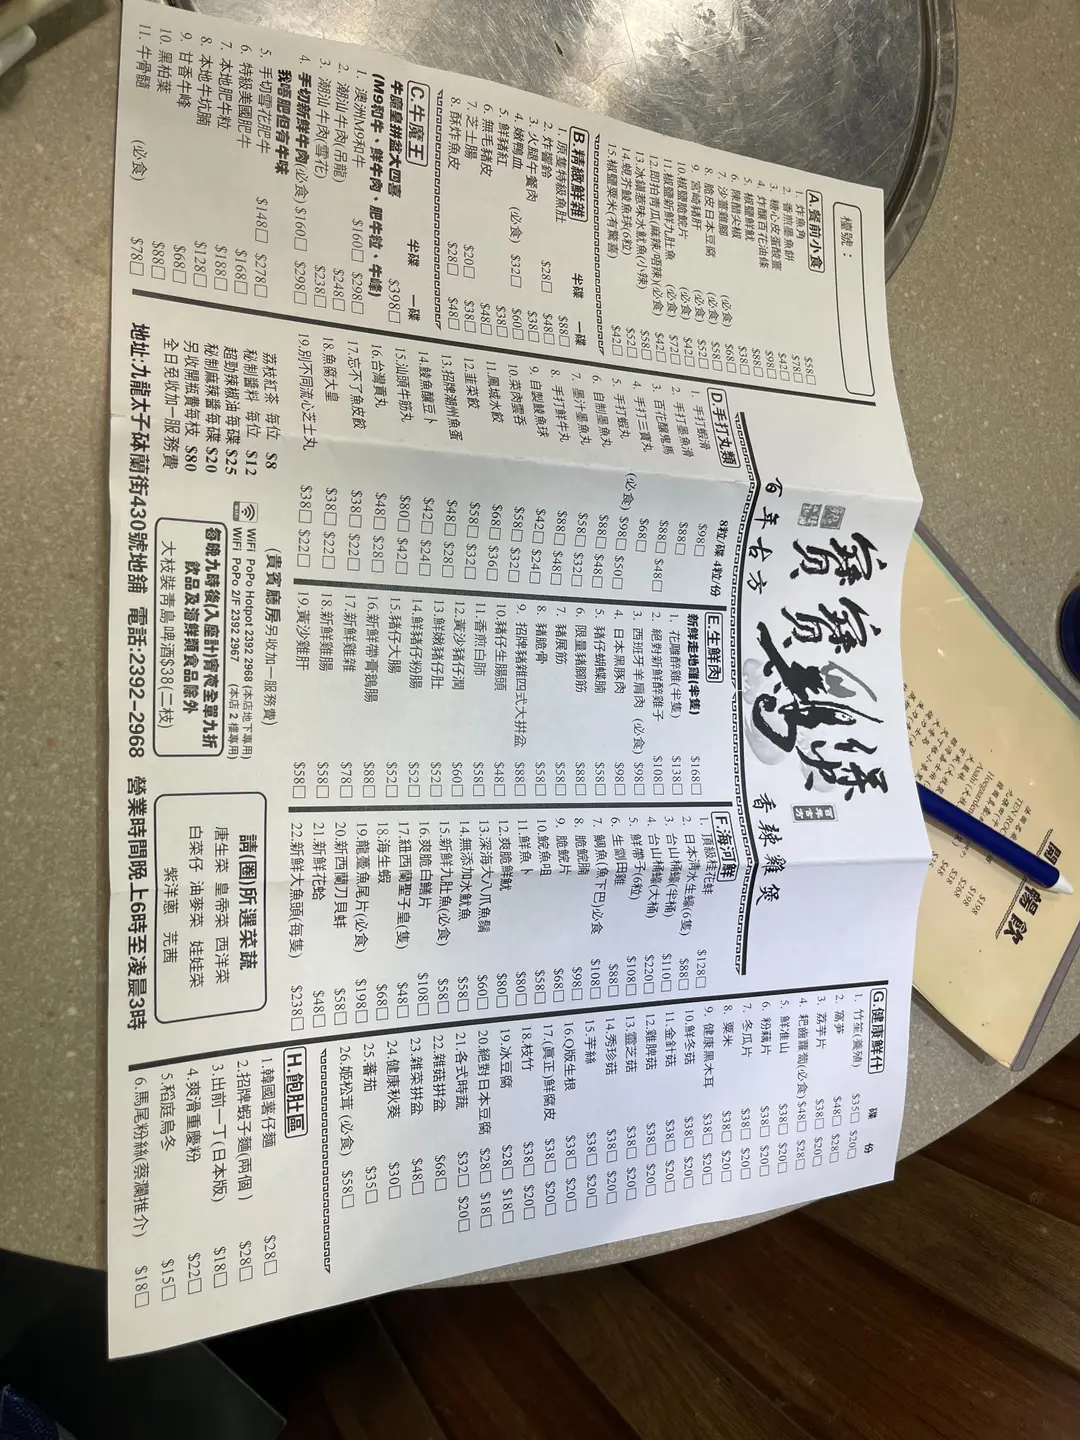 檯號：
百年古方
寶寶雞煲
香辣雞煲
A.餐前小食
1. 炸魚角 $58□
2. 香煎墨魚餅 $78□
3. 糖心皮蛋酸薑 $42□
4. 炸釀百花油條 $98□
5. 椒鹽鮮魷 $88□
6. 陳醋尖椒 $38□
7. 沙薑雞腳 (必食) $68□
8. 脆皮日本豆腐 (必食) $58□
9. 宮崎豬肝 (必食) $52□
10.椒鹽脆鯇片 (必食) $42□
11.椒鹽新鮮九肚魚 (必食) $72□
12.即拍青瓜(麻辣/唔辣)(必食) $42□
13.冰鎮惹味水魷魚(小辣) $58□
14.蜆芥鯪魚球(6粒) $52□
15.椒鹽粟米(有驚喜) $42□
B.精緻鮮雜 半碟 一碟
1. 原隻特級魚肚 $88□
2. 炸響鈴 $28□ $48□
3. 火腿午餐肉 $38□
4. 嫩鴨血 (必食) $32□ $60□
5. 鮮豬紅 $38□
6. 無毛豬皮 $48□
7. 芝士腸 $20□ $38□
8. 酥炸魚皮 $28□ $48□
C.牛魔王 半碟 一碟
牛魔皇拼盆大四喜 $398□
(M9和牛、鮮牛肉、肥牛粒、牛峰)
1. 澳洲M9和牛 $160□ $298□
2. 潮汕牛肉(吊龍) $248□
3. 潮汕牛肉(雪花) $238□
4. 手切新鮮牛肉(必食) $160□ $298□
我唔肥但有牛味
5. 手切雪花肥牛 $148□ $278□
6. 特級美國肥牛 $168□
7. 本地肥牛粒 $188□
8. 本地牛坑腩 $128□
9. 甘香牛峰 $68□
10. 黑柏葉 $88□
11. 牛骨髓 (必食) $78□
D.手打丸類 8粒/碟 4粒/份
1. 手打蝦滑 $98□
2. 手打墨魚滑 $88□
3. 百花釀鬼馬 $88□ $48□
4. 手打三寶丸 $68□
5. 手打蝦丸 (必食) $98□ $50□
6. 自制墨魚丸 $88□ $48□
7. 墨汁墨魚丸 $58□ $32□
8. 手打鮮牛丸 $88□ $48□
9. 自製鯪魚球 $42□ $24□
10.菜肉雲吞 $58□ $32□
11.鳳城水餃 $68□ $36□
12.韮菜餃 $58□ $32□
13.招牌潮州魚蛋 $48□ $28□
14.鯪魚釀豆卜 $42□ $24□
15.汕頭牛筋丸 $80□ $42□
16.台灣貢丸 $48□ $28□
17.忘不了魚皮餃 $38□ $22□
18.魚窩大皇 $38□ $22□
19.別不同流心芝士丸 $38□ $22□
E.生鮮肉
新鮮走地雞(半隻) $168□
1. 花雕醉雞(半隻) $138□
2. 絕對新鮮醉雞子 $108□
3. 西班牙羊肩肉 (必食) $98□
4. 日本黑豚肉 $98□
5. 豬仔蝴蝶腩 $58□
6. 限量豬腳筋 $88□
7. 豬展筋 $58□
8. 豬脆骨 $58□
9. 招牌豬雜四式大拼盆 $88□
10.豬仔生腸頭 $48□
11.香煎白肺 $58□
12.黃沙豬仔潤 $60□
13.鮮嫩豬仔肚 $52□
14.鮮豬仔粉腸 $52□
15.豬仔大腸 $52□
16.新鮮帶膏鵝腸 $88□
17.新鮮雞雜 $78□
18.新鮮雞腸 $58□
19.黃沙雞肝 $58□
F.海河鮮
1. 頂級桂花蚌 $128□
2. 日本清水生蠔(6隻) $88□
3. 台山桶蠔(半桶) $110□
4. 台山桶蠔(大桶) $220□
5. 鮮帶子(6粒) $108□
6. 生劏田雞 $88□
7. 鯛魚(魚下巴)必食 $108□
8. 脆鯇腩 $98□
9. 脆鯇片 $68□
10.鯇魚咀 $58□
11.鮮魚卜 $80□
12.爽脆鮮魷 $80□
13.深海大八爪魚鬚 $60□
14.無添加水魷魚 $58□
15.新鮮九肚魚(必食) $58□
16.爽脆白鱔片 $108□
17.紐西蘭聖子皇(隻) $48□
18.海生蝦 $68□
19.龍躉魚尾片(必食) $198□
20.新西蘭刀貝蚌 $58□
21.新鮮花蛤 $48□
22.新鮮大魚頭(每隻) $238□
G.健康鮮什 碟 份
1. 竹笙(養殖) $35□ $20□
2. 窩荀 $48□ $28□
3. 荔芋片 $38□ $20□
4. 耙齒蘿蔔(必食) $48□ $28□
5. 鮮淮山 $38□ $20□
6. 粉藕片 $38□ $20□
7. 冬瓜片 $38□ $20□
8. 粟米 $38□ $20□
9. 健康黑木耳 $38□ $20□
10.鮮冬菇 $38□ $20□
11.金針菇 $38□ $20□
12.雞脾菇 $38□ $20□
13.靈芝菇 $38□ $20□
14.秀珍菇 $38□ $20□
15.芋絲 $38□ $20□
16.Q版生根 $38□ $20□
17.(真正)鮮腐皮 $38□ $20□
18.枝竹 $38□ $20□
19.冰豆腐 $28□ $18□
20.絕對日本豆腐 $28□ $18□
21.各式時蔬 $32□ $20□
22.雜菇拼盆 $68□
23.雜菜拼盆 $48□
24.健康秋葵 $30□
25.蕃茄 $35□
26.姬松茸 (必食) $58□
H.飽肚區
1.韓國薯仔麵 $28□
2.招牌蝦子麵(兩個) $28□
3.出前一丁(日本版) $18□
4.爽滑重慶粉 $22□
5.稻庭烏冬 $15□
6.馬尾粉絲(蔡瀾推介) $18□
荔枝紅茶 每位 $8
秘制醬料 每位 $12
超勁辣椒油每碟 $25
秘制麻辣醬每碟 $20
另收開瓶費每枝 $80
全日免收加一服務費
(貴賓廳房另收加一服務費)
WiFi PoPo Hotpot 2392 2968 (本店地下專用)
WiFi PoPo 2/F 2392 2967 (本店２樓專用)
每晚九時後入座計宵夜全單九折
飲品及海鮮類食品除外
大枝裝青島啤酒$38(二枝)
請(圈)所選菜蔬
唐生菜 皇帝菜 西洋菜
白菜仔 油麥菜 娃娃菜
紫洋蔥 芫茜
地址:九龍太子砵蘭街430號地舖 電話:2392-2968 營業時間晚上6時至凌晨3時
暢飲
$198
$108
$268
TEN ROC
Hoegaarden
Asahi